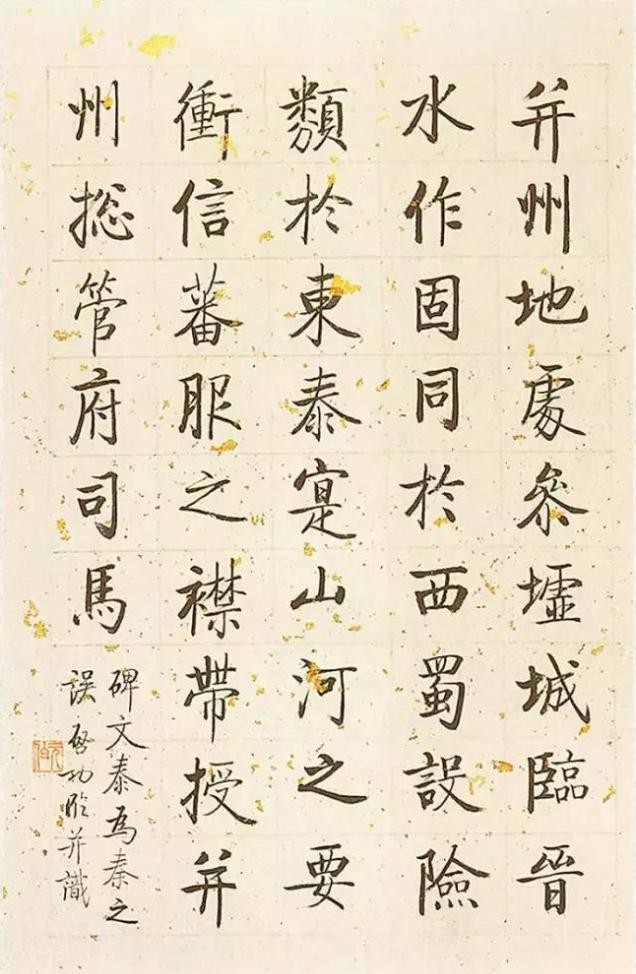 并州地處參墟城臨晉
水作固同於西蜀設險
類於東泰寔山河之要
衝信蕃服之襟帶授并
州捴管府司馬
碑文泰為秦之
誤啓功臨并識